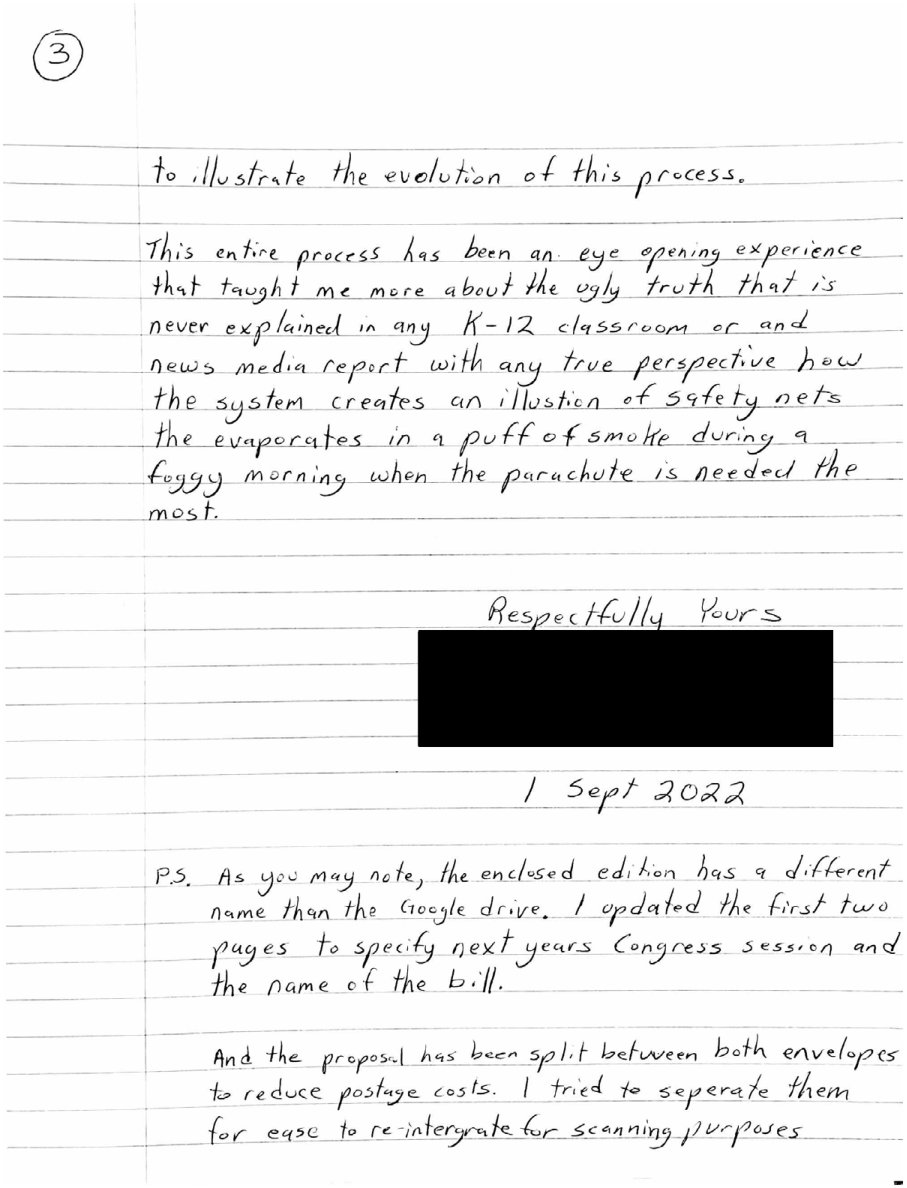 3
to illustrate the evolution of this process.
This entire process has been an eye opening experience
that taught me more about the ugly truth that is
never explained in any K-12 classroom or and
news media report with any true perspective how
the system creates an illustion of safety nets
the evaporates in a puff of smoke during a
foggy morning when the parachute is needed the
most.
Respectfully Yours
1 Sept 2022
P.S. As you may note, the enclosed edition has a different
name than the Google drive. I updated the first two
pages to specify next years Congress session and
the name of the bill.
And the proposal has been split between both envelopes
to reduce postage costs. I tried to seperate them
for ease to re-intergrate for scanning purposes